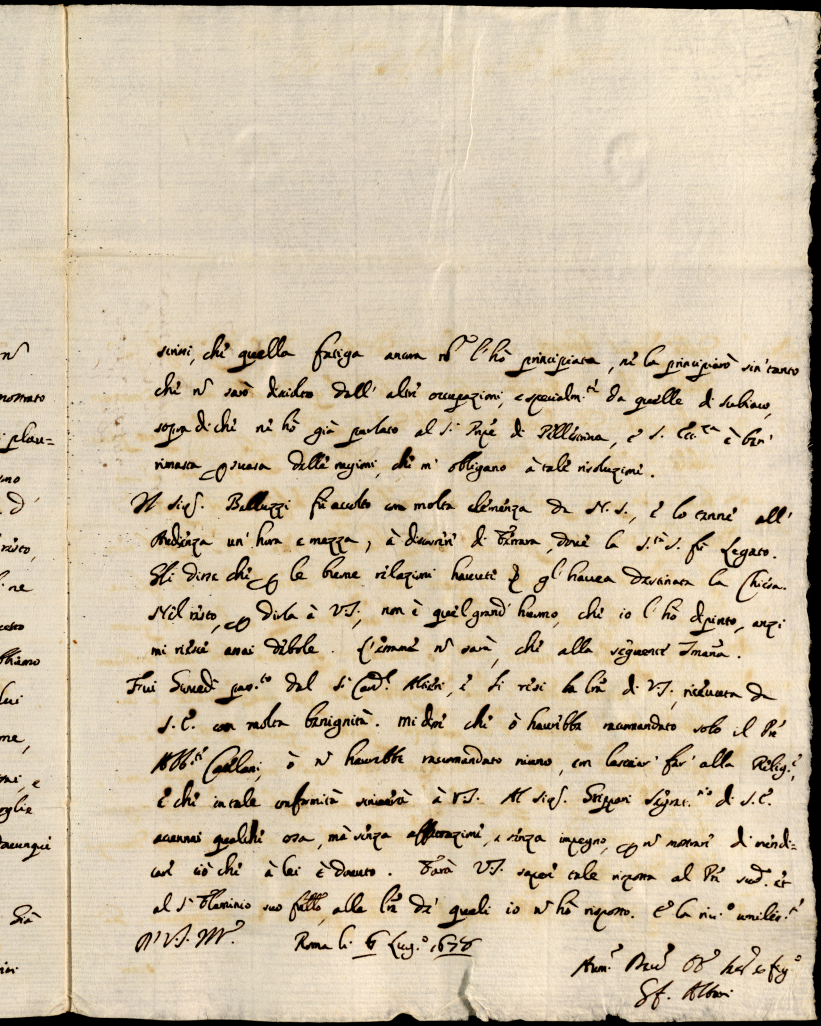 scrissi, che quella fatiga ancora nõ l'hò principiata, ne la principiarò sin'tanto
che nõ sarò disciolto dall'altre occupazioni, e specialm.te da quelle di Subiaco,
sopra di che ne hò già parlato al S.r Prñpe di Pellestrina, e S. Ecc.za è ben'
rimasta persuasa delle ragioni, che m'obligano à tale risoluzione.
Il sig.r Belluzzi fù accolto con molta clemenza da N. S., e lo tenne all'
Audienza un'hora e mezza, à discorrere di Ferrara, dove la S.tà S. fù Legato.
Gli disse che per le buone relazioni havute gl'havea destinata la Chiesa.
Nel resto, per dirla à V.S., non è quel grand'huomo, che io l'hò dipinto, anzi
mi riesce assai debole. L'esame nõ sarà, che alla seguente Smãna.
Fui Giovedì pass.to dal S.r Card.l Altieri, e li resi la lr̃a di V.S., ricevuta da
S. E. con molta benignità. Mi disse che ò haverebbe racomandato solo il Pr̃e
Abb.te Capellani, ò nõ haverebbe racomandato niuno, con lasciar' far' alla Relig.e,
e che in tale conformità scriverà à V.S. Al sig.r Segret.rio di S. E.
accennai qualche cosa, mà senza affettazione, e senza impegno, per nõ mostrare di mendi=
care ciò che à lei è dovuto. Farà V.S. sapere tale risposta al Pr̃e sud.o et
al S.r Flaminio suo fr̃ello, alle lr̃e de' quali io nõ hò risposto. E la riv.o umilm.te
D. V. S. M.
Roma li 6 Lug.o 1678
Hum.o Dev.o Obl.
Gf. Albani
n
mostrato
plau=
d'
risto,
ne
lui
me,
e
oglie
dovunque
Già